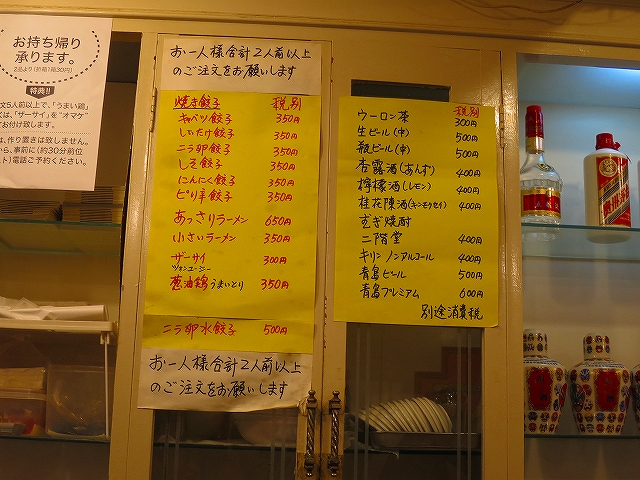 お持ち帰り
承ります。
2品より(折箱1箱30円)
特典!!
文5人前以上で、「うまい鶏」
くは、「ザーサイ」を"オマケ"
お付け致します。
は、作り置きは致しません。
から、事前に(約30分前位
ト)電話ご予約ください。
お一人様合計2人前以上
のご注文をお願いします
焼き餃子 税別
キャベツ餃子 350円
しいたけ餃子 350円
ニラ卵餃子 350円
しそ餃子 350円
にんにく餃子 350円
ピリ辛餃子 350円
あっさりラーメン 650円
小さいラーメン 350円
ザーサイ 300円
ツォンユージー
葱油鶏 うまいとり 350円
ニラ卵水餃子 500円
お一人様合計2人前以上
のご注文をお願いします
税別
ウーロン茶 300円
生ビール(中) 500円
瓶ビール(中) 500円
杏露酒(あんず) 400円
檸檬酒(レモン) 400円
桂花陳酒(キンモクセイ) 400円
むぎ焼酎
二階堂 400円
キリン ノンアルコール 400円
青島ビール 500円
青島プレミアム 600円
別途消費税